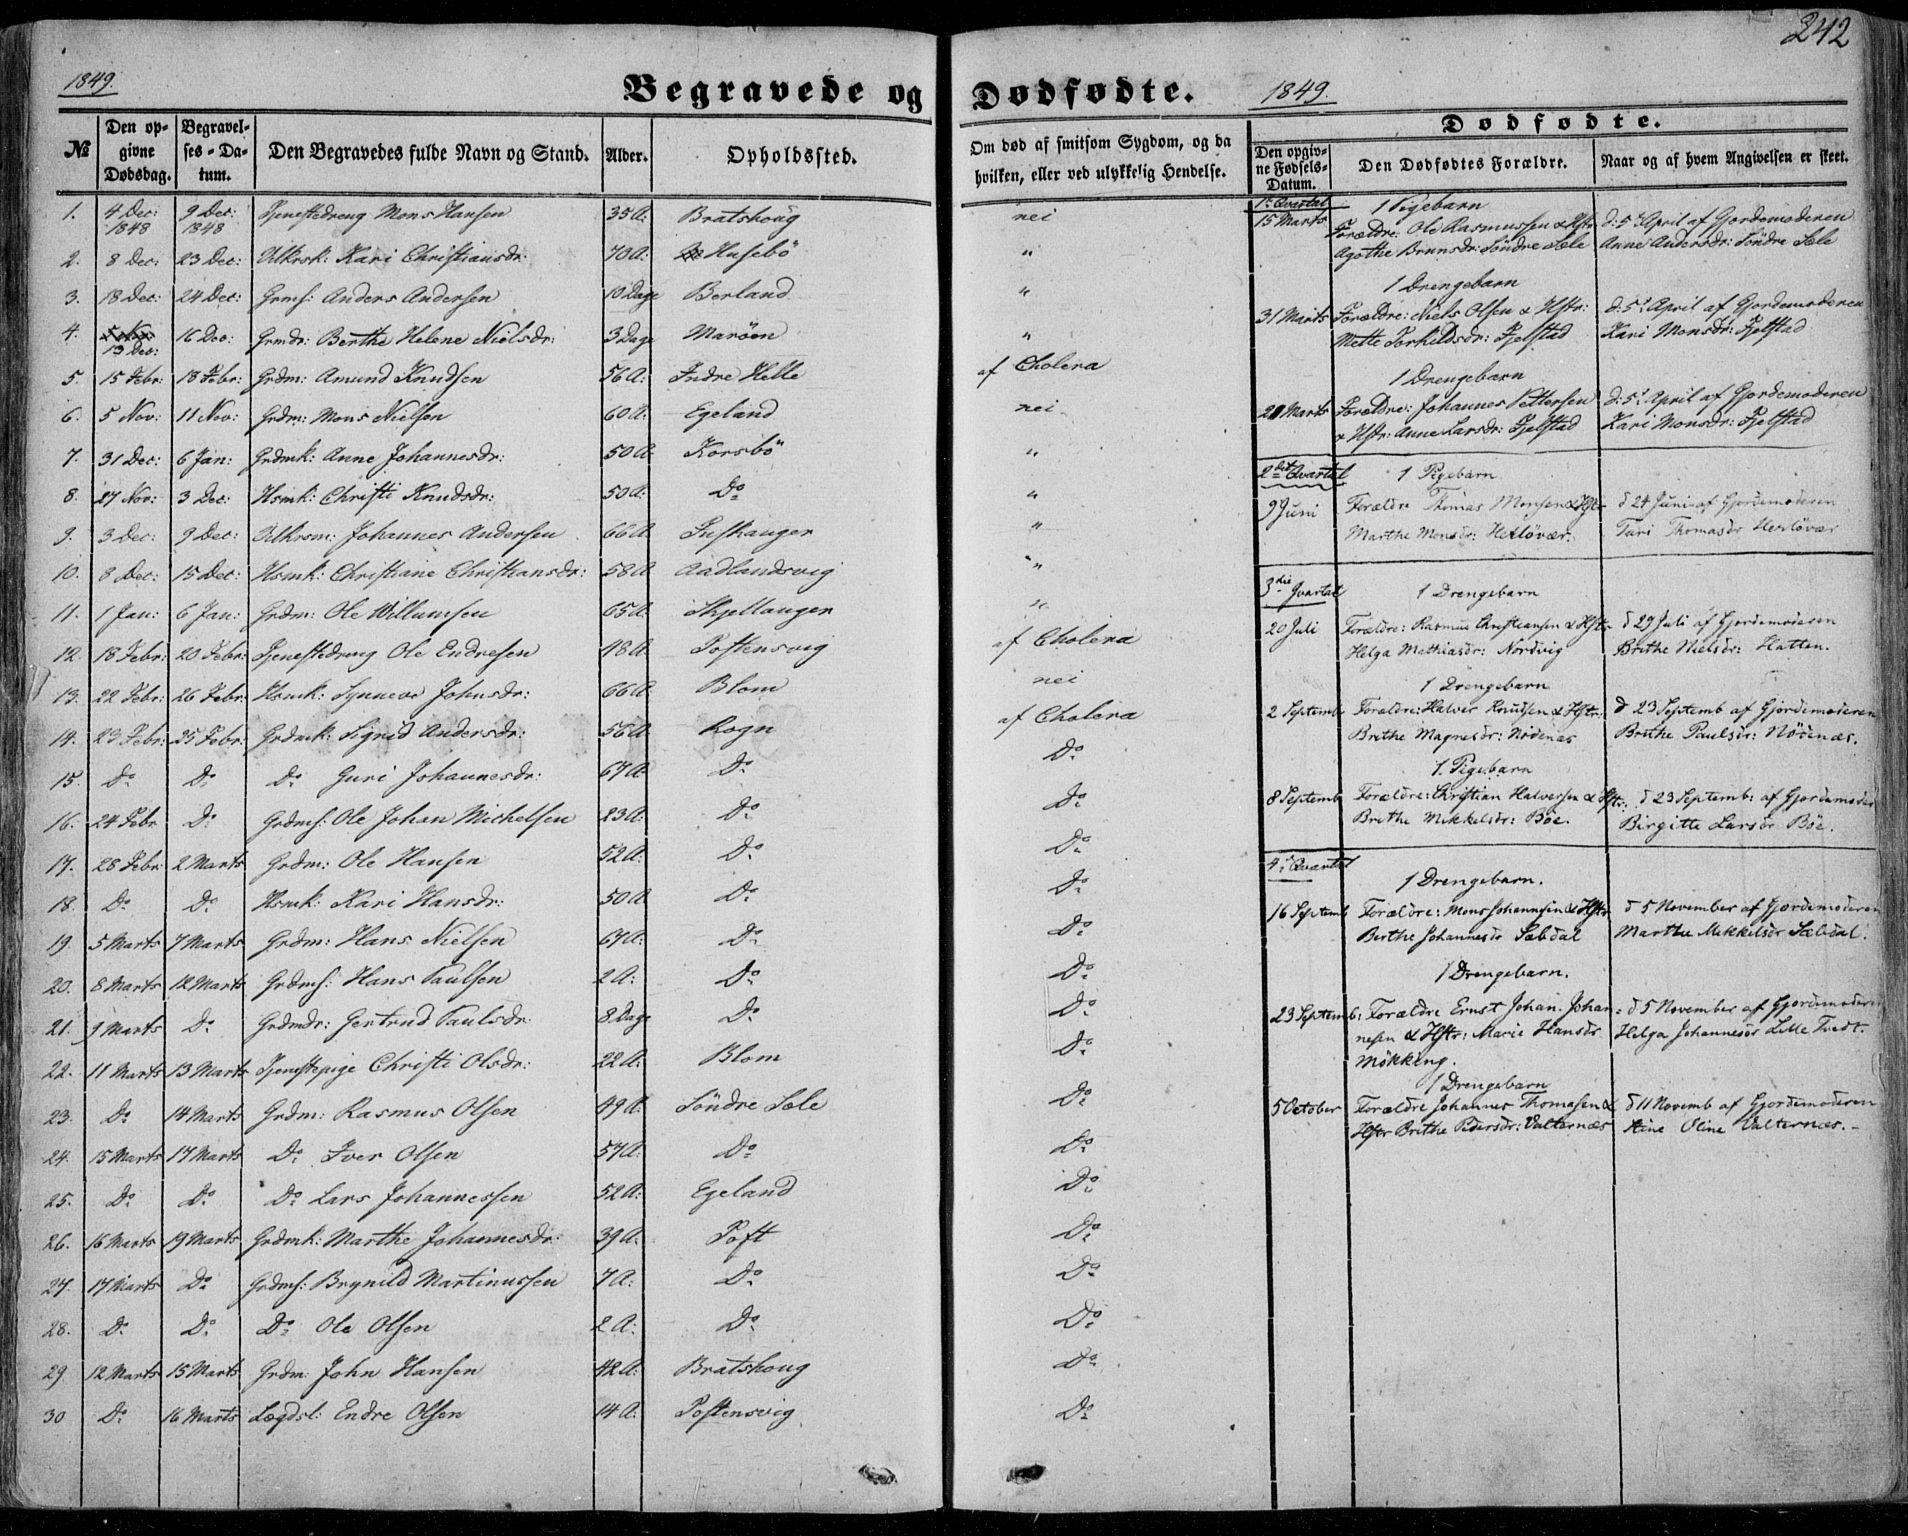 242
1849.
Begravede og Dødfødte.
1849.
№
Den opgivne Dødsdag.
Begravelses-Datum.
Den Begravedes fulde Navn og Stand.
Alder.
Opholdssted.
Om død af smitsom Sygdom, og da hvilken, eller ved ulykkelig Hendelse.
1. 4 Dec: 1848 9 Dec: 1848 Tjenestedreng Mons Hansen 35 A: Bratshoug nei
2. 8 Dec: 23 Dec: Kari Christiansdr: 70 A: Husebö "
3. 18 Dec: 24 Dec: Grms: Anders Andersen 10 Dage Berland "
4. 13 Dec: 16 Dec: Grmdr: Berthe Helene Nielsdr: 3 Dage Maröen "
5. 15 Febr: 18 Febr: Grdm: Amund Knudsen 56 A: Indre Helle af Cholera
6. 5 Nov: 11 Nov: Grdm: Mons Nielsen 60 A: Egeland nei
7. 31 Dec: 6 Jan: Grdmk: Anne Johannesdr: 50 A: Korsbö "
8. 27 Nov: 3 Dec: Hsmk: Christi Knudsdr: 50 A: Do "
9. 3 Dec: 9 Dec: Johannes Andersen 66 A: "
10. 8 Dec: 15 Dec: Hsmk: Christiane Christiansdr: 58 A: Aadlandsvig "
11. 1 Jan: 6 Jan: Grdm: Ole Willumsen 65 A: Skjellanger "
12. 18 Febr: 20 Febr: Tjenestedreng Ole Endresen 48 A: Toftensvig af Cholera
13. 22 Febr: 26 Febr: Hsmk: Synneve Johnsdr: 66 A: Blom nei
14. 23 Febr: 25 Febr: Grdmk: Sigrid Andersdr: 56 A: Rogn af Cholera
15. Do Do Do Guri Johannesdr: 67 A: Do Do
16. 24 Febr Do Grdms: Ole Johan Michelsen 23 A: Do Do
17. 28 Febr 2 Marts Grdm: Ole Hansen 52 A: Do Do
18. Do Do Hsmk: Kari Hansdr: 50 A: Do Do
19. 5 Marts 7 Marts Grdm: Hans Nielsen 67 A: Do Do
20. 8 Marts 12 Marts Grdms: Hans Paulsen 2 A: Do Do
21. 9 Marts Do Grdmdr: Gertrud Paulsdr 8 Dage Do Do
22. 11 Marts 13 Marts Tjenestepige Christi Olsdr: 22 A: Blom Do
23. Do 14 Marts Grdm: Rasmus Olsen 49 A: Söndre Sæle Do
24. 15 Marts 17 Marts Do Iver Olsen 57 A: Do Do
25. Do Do Do Lars Johannessen 52 A: Egeland Do
26. 16 Marts 19 Marts Grdmk: Marthe Johannesdr: 39 A: Toft Do
27. 17 Marts Do Grdms: Brynild Martinussen 7 A: Do Do
28. Do Do Do Ole Olsen 2 A: Do Do
29 12 Marts 15 Marts Grdm: John Hansen 42 A: Bratshoug Do
30 Do 16 Marts Lægdsl: Endre Olsen 14 A: Toftensvig Do
Dødfødte.
Den opgivne Fødsels-Datum.
Den Dødfødtes Forældre.
Naar og af hvem Angivelsen er skeet.
1te Qvartal 1 Pigebarn
15 Marts Forældre: Ole Rasmussen & Hstr d: 5te April af Gjordemoderen
Agothe Brunsdr: Söndre Sæle Anne Andersdr: Söndre Sæle
1 Drengebarn
31 Marts Forældre: Niels Olsen & Hstr: d: 5te April af Gjordemoderen
Mette Torkildsdr: Fjelstad Kari Monsdr: Fjelstad
1 Drengebarn
21 Marts Forældre: Johannes Pettersen d: 5te April af Gjordemoderen
& Hstr: Anne Larsdr: Fjelstad Kari Monsdr: Fjelstad
2det Qvartal 1 Pigebarn
9 Juni Forældre Thomas Monsen & Hstr d 24 Juni af Gjordemoderen
Marthe Monsdr: Herløvær. Turi Thomasdr Herløvær
3die Qvartal 1 Drengebarn
20 Juli Forældre: Rasmus Christiansen & Hstr d 29 Juli af Gjordemoderen
Helga Mathiasdr: Nordvig Brithe Nielsdr: Hatten.
1 Drengebarn
2 Septemb Forældre: Halver Knutsen & Hstr: d 23 Septemb af Gjordemoderen
Brithe Magnesdr: Nödenæs Brithe Paulsdr: Nödenæs.
1. Pigebarn
8 Septemb Forældre: Christian Halversen & Hstr: d 23 Septemb: af Gjordemoder
Brithe Mikkelsdr: Böe. Birgitte Larsdr Böe.
4de Qvartal
1 Drengebarn.
16 Septemb Forældre: Mons Johannesen & Hstr d 5 November af Gjordemoderen
Berthe Johannesdr Sæbdal Marthe Mikkelsdr Sæbdal.
1 Drengebarn.
23 Septemb: Forældre Ernst Johan Johan= d 5 November af Gjordemoderen
nesen & Hstr: Marie Hansdr Helga Johannesdr Lille Tvedt.
Mökking.
1 Drengebarn
5 October Forældre Johannes Thomasen & d 11 Novemb af Gjordemoderen
Hstr Brithe Pedersdr: Valternæs Stine Oline Valternæs.